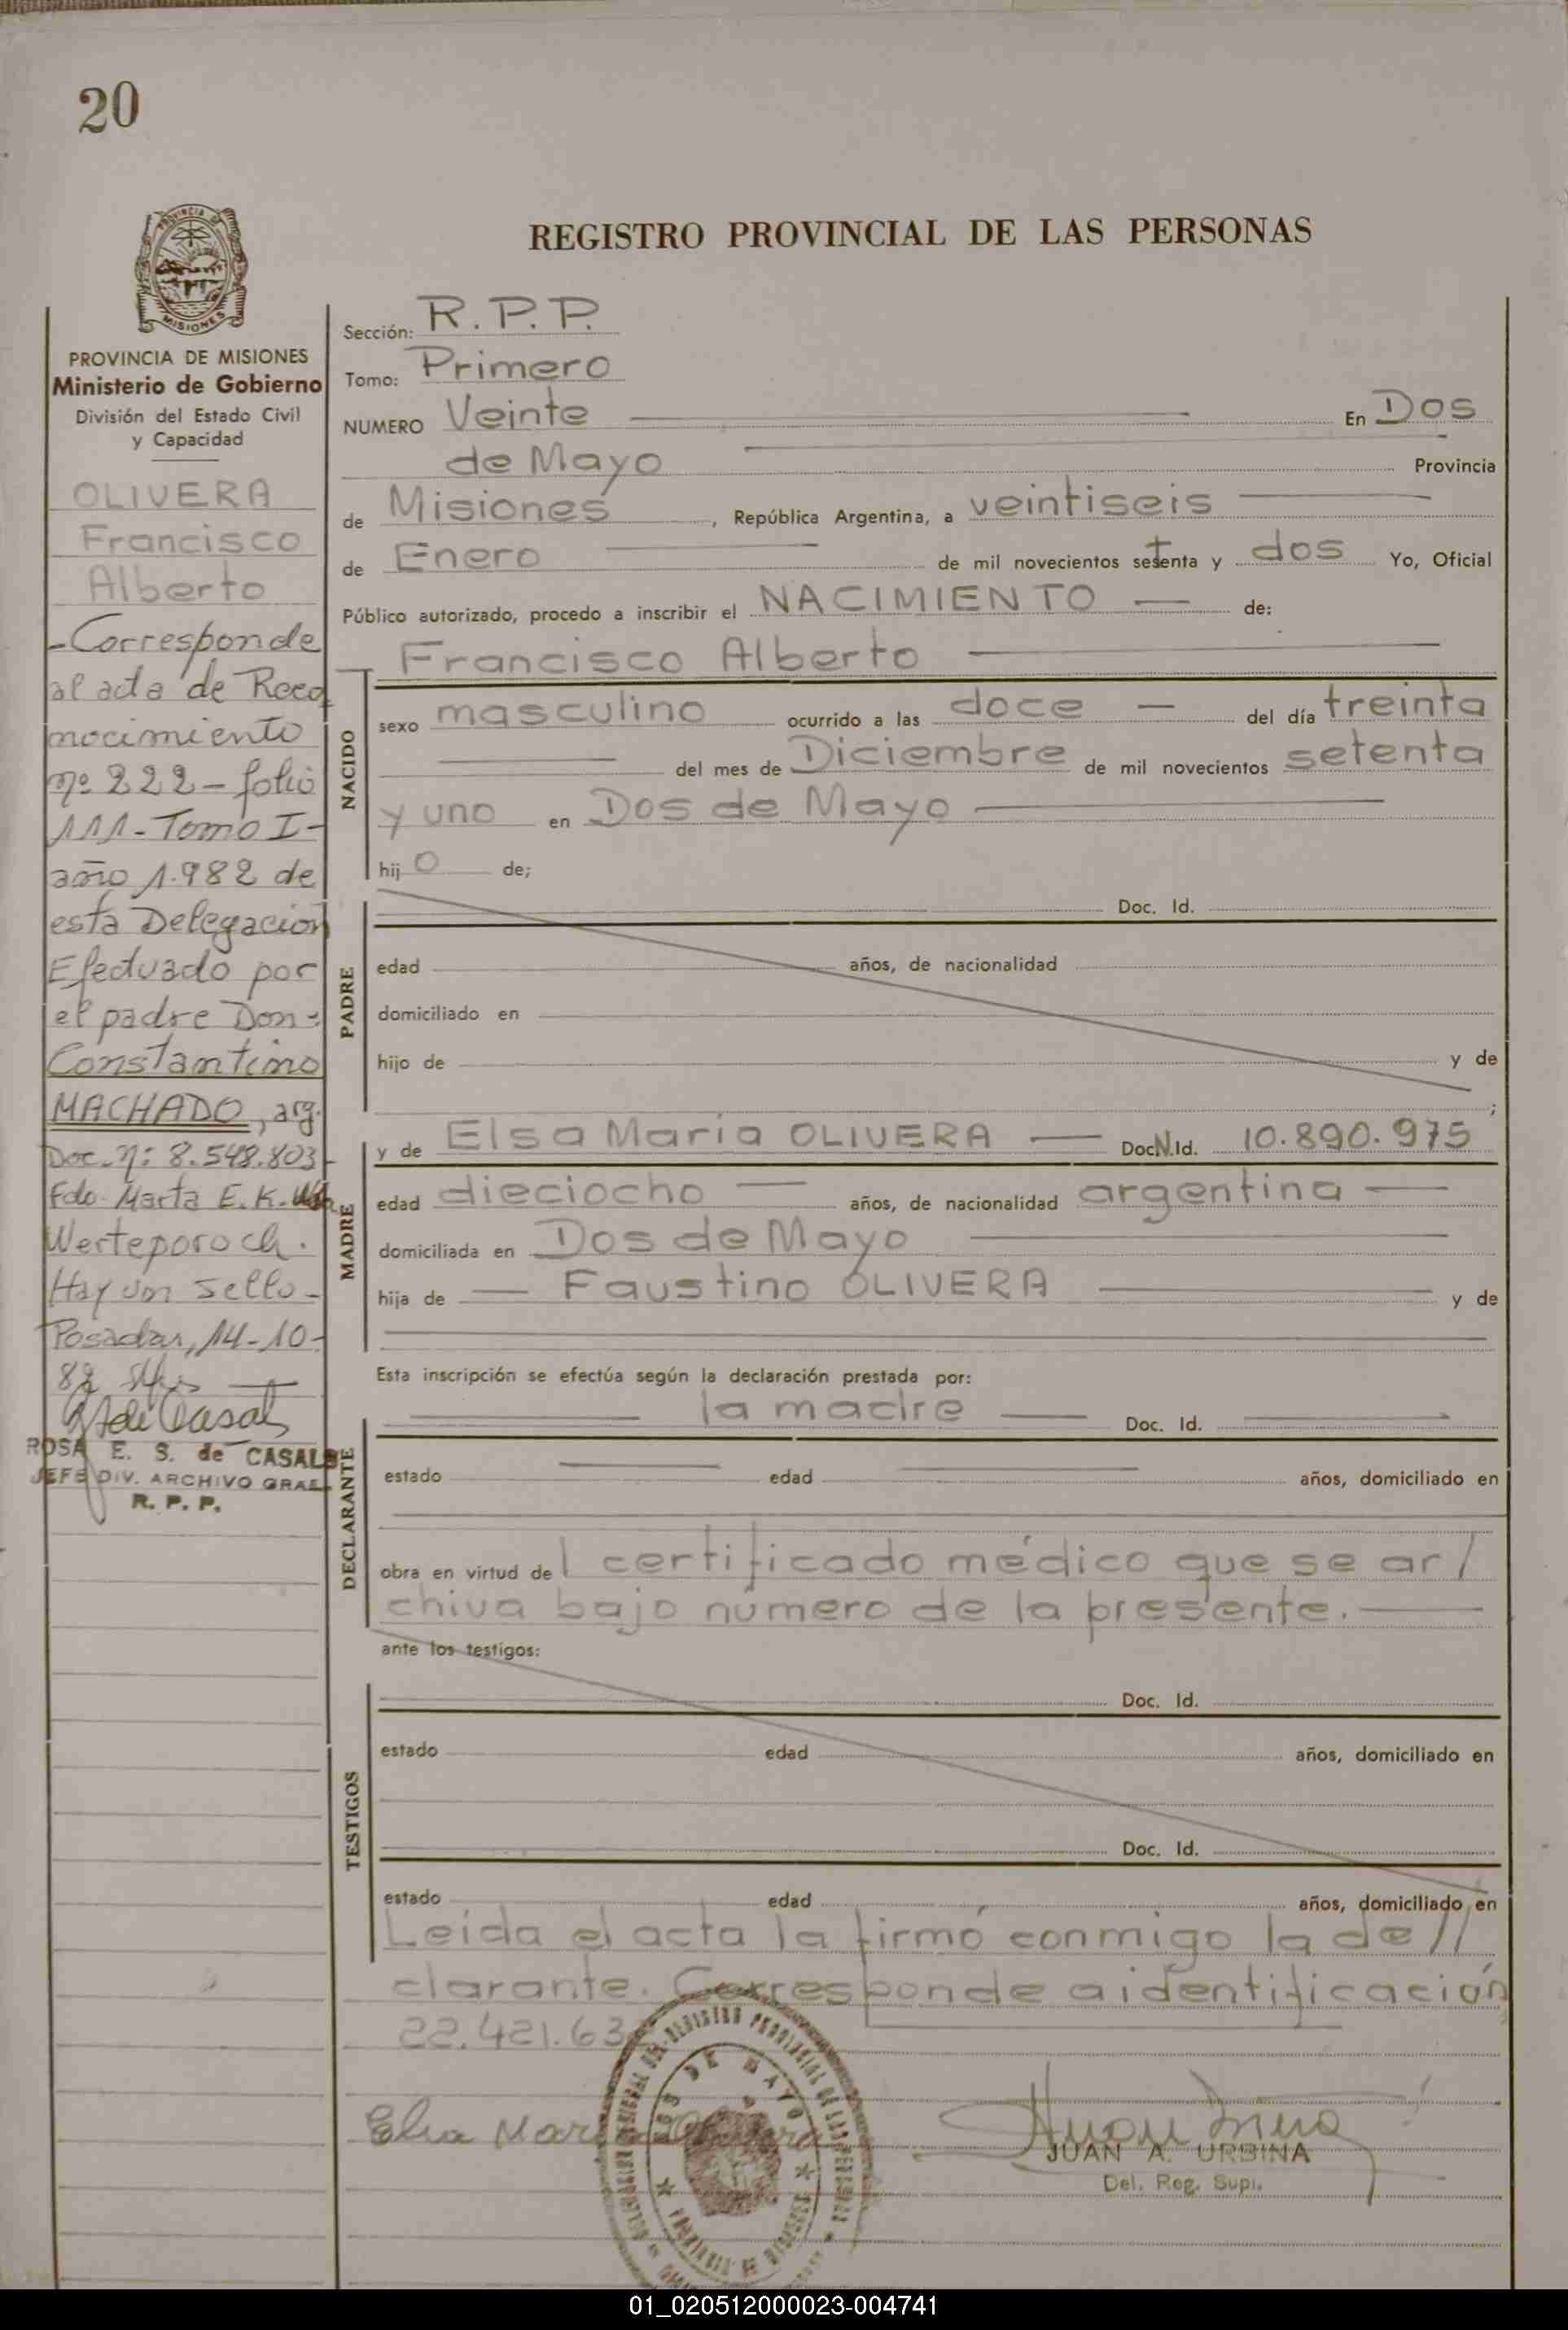 20
PROVINCIA DE MISIONES
PROVINCIA DE MISIONES
Ministerio de Gobierno
División del Estado Civil
y Capacidad
OLIVERA
Francisco
Alberto
-Corresponde
al acta de Reco
nocimiento
nº 222-folio
111-Tomo I-
año 1.982 de
esta Delegación
Efectuado por
el padre Don-
Constantino
MACHADO, arg.
Doc. nº: 8.548.803-
Fdo. Marta E. K.
Werteporoch.
Hay un sello-
Posadas, 14-10-
82
ROSA E. S. de CASALS
JEFE DIV. ARCHIVO GRAL.
R. P. P.
REGISTRO PROVINCIAL DE LAS PERSONAS
Sección: R.P.P.
Tomo: Primero
NUMERO Veinte En Dos
de Mayo Provincia
de Misiones, República Argentina, a veintiseis
de Enero de mil novecientos setenta y dos Yo, Oficial
Público autorizado, procedo a inscribir el NACIMIENTO de:
Francisco Alberto
NACIDO
sexo masculino ocurrido a las doce del día treinta
del mes de Diciembre de mil novecientos setenta
y uno en Dos de Mayo
hijo de;
PADRE
Doc. Id.
edad años, de nacionalidad
domiciliado en
hijo de y de
;
MADRE
y de Elsa Maria OLIVERA Doc.N.Id. 10.890.975
edad dieciocho años, de nacionalidad argentina
domiciliada en Dos de Mayo
hija de Faustino OLIVERA y de
Esta inscripción se efectúa según la declaración prestada por:
DECLARANTE
la madre Doc. Id.
estado edad años, domiciliado en
obra en virtud del certificado médico que se ar/
chiva bajo número de la presente.
ante los testigos:
TESTIGOS
Doc. Id.
estado edad años, domiciliado en
Doc. Id.
estado edad años, domiciliado en
Leída el acta la firmó conmigo la de//
clarante. Corresponde a identificación
22.421.63
Elsa Maria
JUAN A. URBINA
Del. Reg. Supl.
DOS DE MAYO
01_020512000023-004741